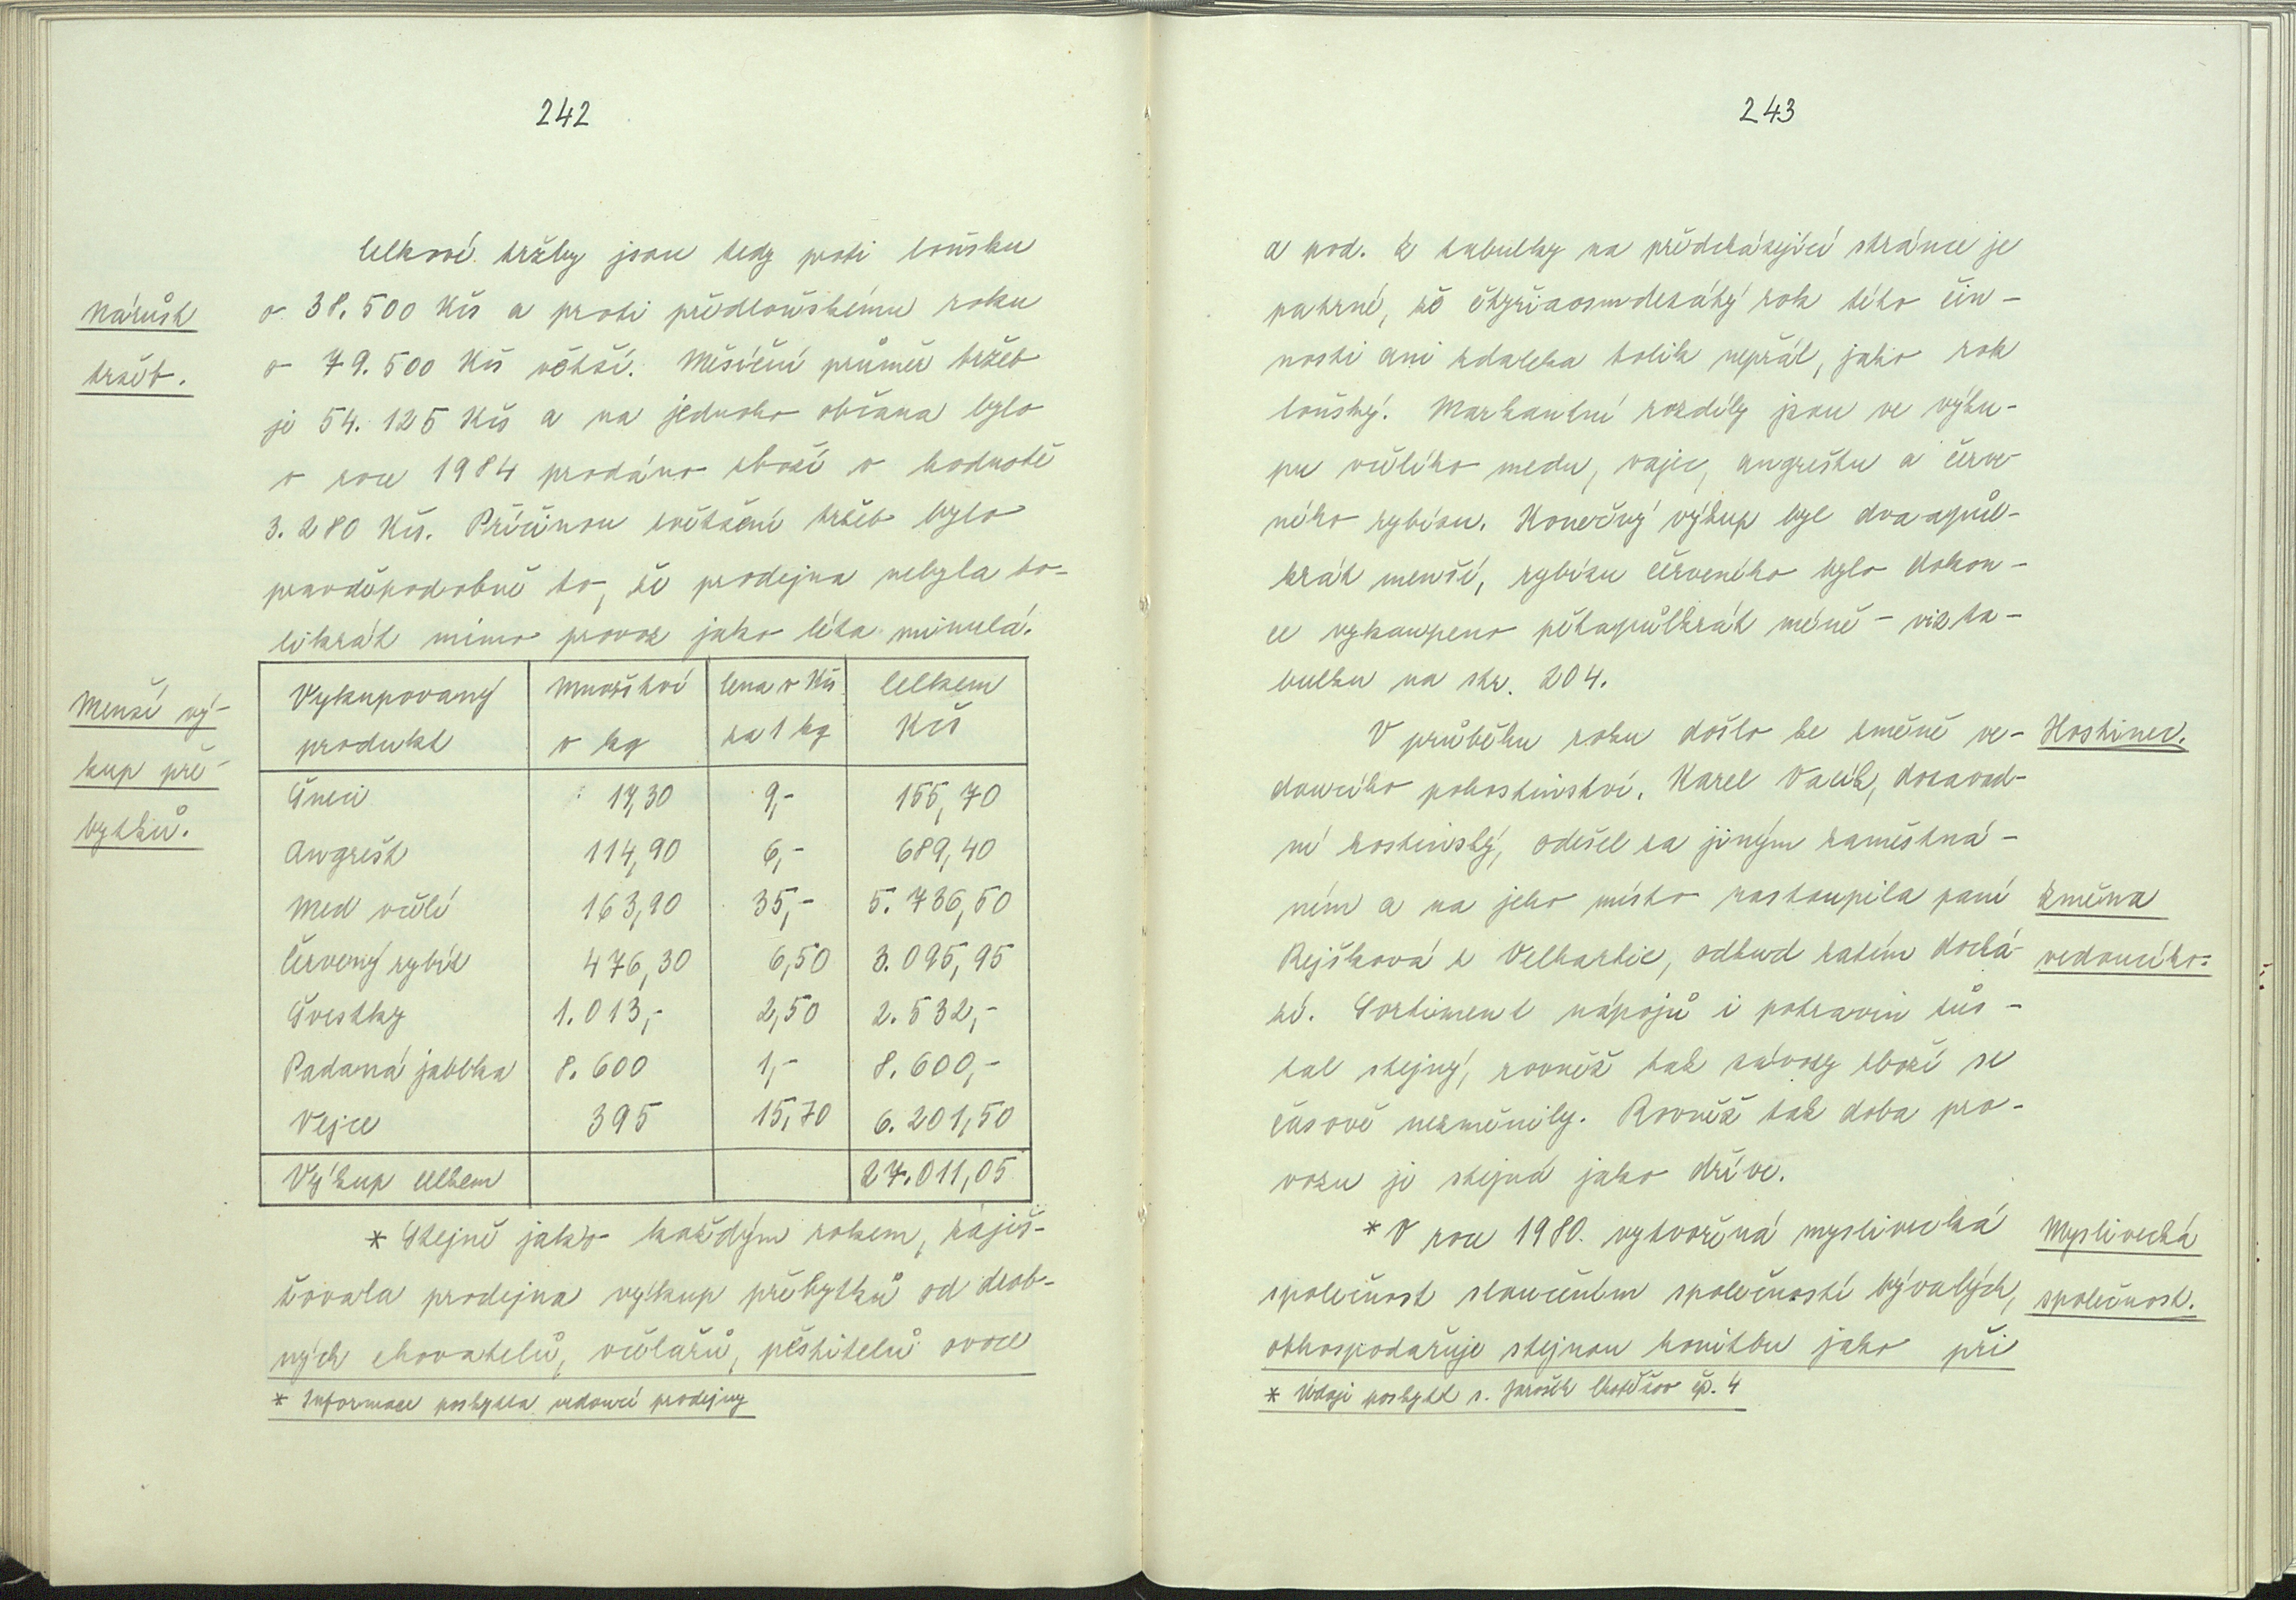 242
Celkové tržby jsou tedy proti loňsku
Nárůst
tržeb.
o 38.500 Kčs a proti předloňskému roku
o 79.500 Kčs větší. Měsíční průměr tržeb
je 54.125 Kčs a na jednoho občana bylo
v roce 1984 prodáno zboží v hodnotě
3.280 Kčs. Příčinou zvětšení tržeb bylo
pravděpodobně to, že prodejna nebyla to-
likrát mimo provoz jako léta minulá.
Menší vý-
kup pře-
bytků.
Vykupovaný produkt | Množství v kg | Cena v Kčs za 1 kg | Celkem Kčs
Šneci | 17,30 | 9,- | 155,70
Angrešt | 114,90 | 6,- | 689,40
Med včelí | 163,90 | 35,- | 5.736,50
Červený rybíz | 476,30 | 6,50 | 3.095,95
Švestky | 1.013,- | 2,50 | 2.532,-
Padaná jablka | 8.600 | 1,- | 8.600,-
Vejce | 395 | 15,70 | 6.201,50
Výkup celkem | | | 27.011,05
* Stejně jako každým rokem, zajiš-
ťovala prodejna výkup přebytků od drob-
ných chovatelů, včelařů, pěstitelů ovoce
* Informace poskytla vedoucí prodejny
243
a pod. Z tabulky na předcházející stránce je
patrné, že čtyřiaosmdesátý rok této čin-
nosti ani zdaleka tolik nepřál, jako rok
loňský. Markantní rozdíly jsou ve výku-
pu včelího medu, vajec, angreštu a červe-
ného rybízu. Konečný výkup byl dvaapůl-
krát menší, rybízu červeného bylo dokon-
ce vykoupeno pětapůlkrát méně - viz ta-
bulku na str. 204.
V průběhu roku došlo ke změně ve-
Hostinec.
doucího pohostinství. Karel Vacík, dosavad-
ní hostinský, odešel za jiným zaměstná-
ním a na jeho místo nastoupila paní
Změna
vedoucího.
Rejšková z Velhartic, odkud zatím dochá-
zí. Sortiment nápojů i potravin zůs-
tal stejný, rovněž tak závozy zboží se
časově nezměnily. Rovněž tak doba pro-
vozu je stejná jako dříve.
* V roce 1980 vytvořená myslivecká
Myslivecká
společnost.
společnost sloučením společností bývalých,
obhospodařuje stejnou honitbu jako při
* Údaje poskytl s. Jarošík čp. 4